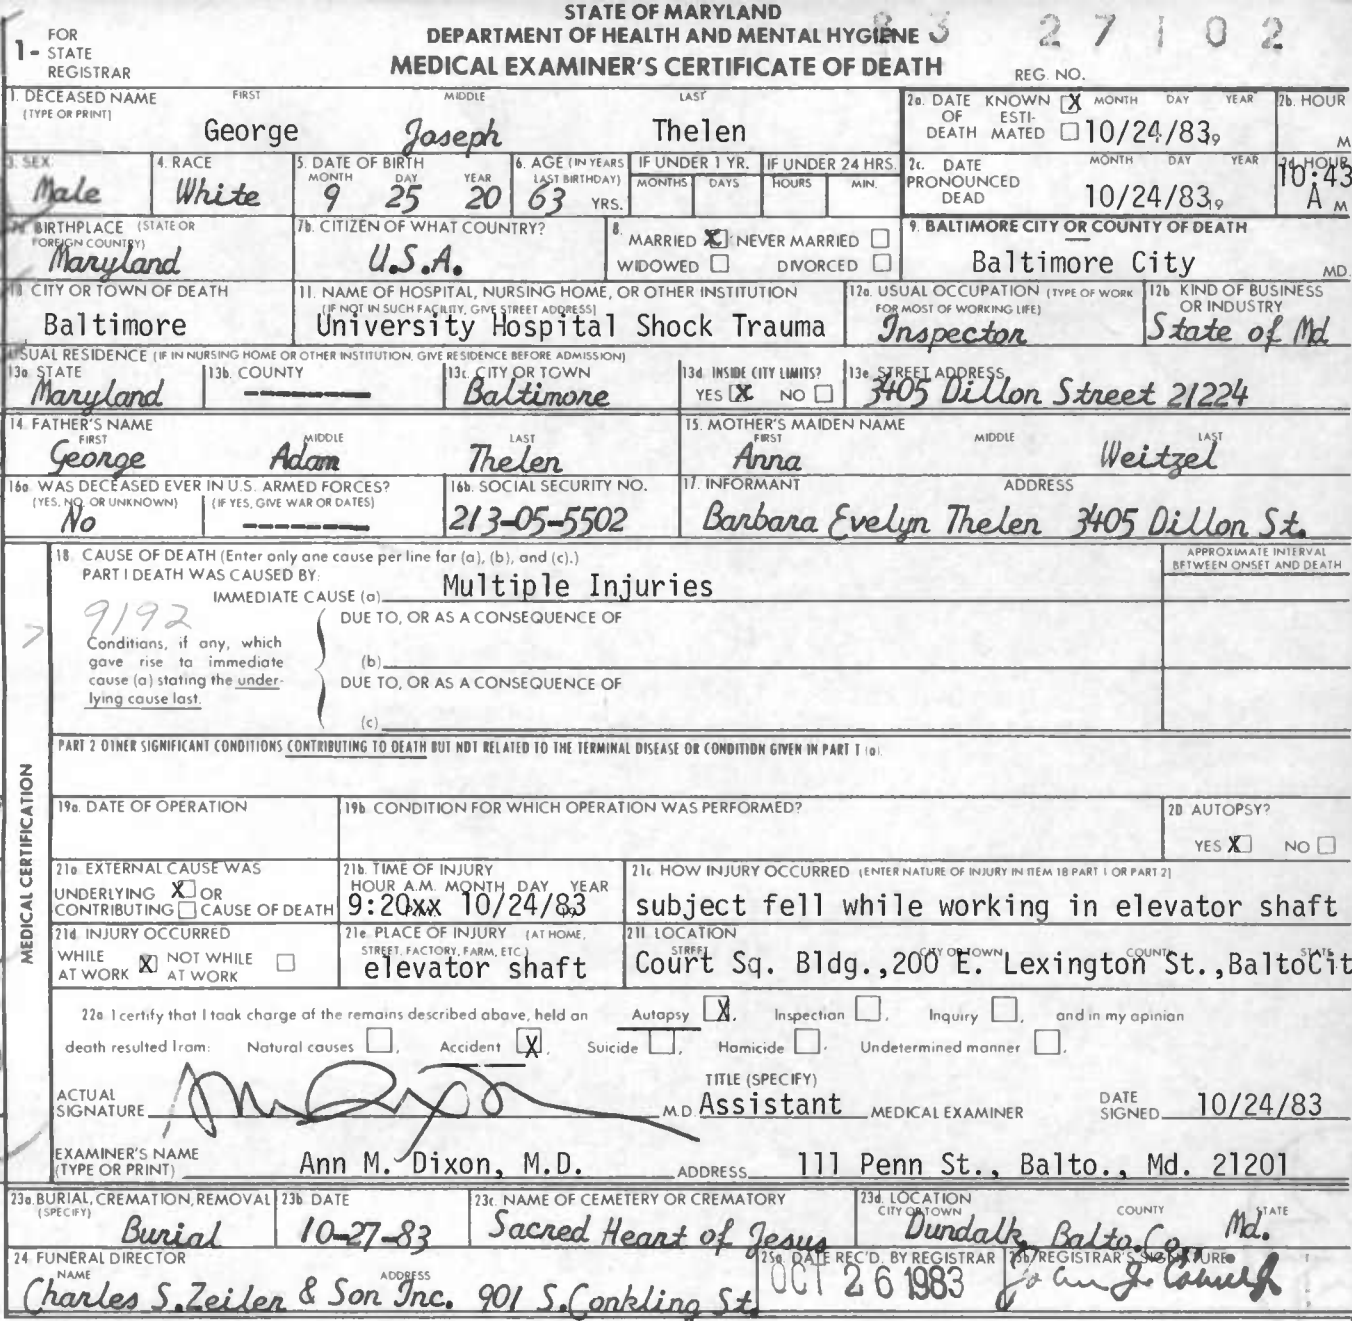 STATE OF MARYLAND
DEPARTMENT OF HEALTH AND MENTAL HYGIENE
MEDICAL EXAMINER'S CERTIFICATE OF DEATH
1- FOR STATE REGISTRAR
83 27102
REG. NO.
1. DECEASED NAME (TYPE OR PRINT) FIRST MIDDLE LAST
George Joseph Thelen
2a. DATE OF DEATH KNOWN X ESTIMATED MONTH DAY YEAR
10/24/83 19
2b. HOUR M
3. SEX
Male
4. RACE
White
5. DATE OF BIRTH MONTH DAY YEAR
9 25 20
6. AGE (IN YEARS LAST BIRTHDAY)
63 YRS.
IF UNDER 1 YR. MONTHS DAYS
IF UNDER 24 HRS. HOURS MIN.
2c. DATE PRONOUNCED DEAD MONTH DAY YEAR
10/24/83 19
2d. HOUR
10:43 A M
7a. BIRTHPLACE (STATE OR FOREIGN COUNTRY)
Maryland
7b. CITIZEN OF WHAT COUNTRY?
U.S.A.
8. MARRIED X NEVER MARRIED
WIDOWED DIVORCED
9. BALTIMORE CITY OR COUNTY OF DEATH
Baltimore City MD.
10. CITY OR TOWN OF DEATH
Baltimore
11. NAME OF HOSPITAL, NURSING HOME, OR OTHER INSTITUTION
(IF NOT IN SUCH FACILITY, GIVE STREET ADDRESS)
University Hospital Shock Trauma
12a. USUAL OCCUPATION (TYPE OF WORK FOR MOST OF WORKING LIFE)
Inspector
12b. KIND OF BUSINESS OR INDUSTRY
State of Md
USUAL RESIDENCE (IF IN NURSING HOME OR OTHER INSTITUTION, GIVE RESIDENCE BEFORE ADMISSION)
13a. STATE
Maryland
13b. COUNTY
13c. CITY OR TOWN
Baltimore
13d. INSIDE CITY LIMITS?
YES X NO
13e. STREET ADDRESS
3405 Dillon Street 21224
14. FATHER'S NAME FIRST MIDDLE LAST
George Adam Thelen
15. MOTHER'S MAIDEN NAME FIRST MIDDLE LAST
Anna Weitzel
16a. WAS DECEASED EVER IN U.S. ARMED FORCES?
(YES, NO, OR UNKNOWN) (IF YES, GIVE WAR OR DATES)
No
16b. SOCIAL SECURITY NO.
213-05-5502
17. INFORMANT ADDRESS
Barbara Evelyn Thelen 3405 Dillon St.
MEDICAL CERTIFICATION
18. CAUSE OF DEATH (Enter only one cause per line for (a), (b), and (c).)
APPROXIMATE INTERVAL BETWEEN ONSET AND DEATH
PART I DEATH WAS CAUSED BY:
IMMEDIATE CAUSE (a) Multiple Injuries
9192
DUE TO, OR AS A CONSEQUENCE OF
Conditions, if any, which gave rise to immediate cause (a) stating the underlying cause last.
(b)
DUE TO, OR AS A CONSEQUENCE OF
(c)
PART 2 OTHER SIGNIFICANT CONDITIONS CONTRIBUTING TO DEATH BUT NOT RELATED TO THE TERMINAL DISEASE OR CONDITION GIVEN IN PART I (a).
19a. DATE OF OPERATION
19b. CONDITION FOR WHICH OPERATION WAS PERFORMED?
20. AUTOPSY?
YES X NO
21a. EXTERNAL CAUSE WAS
UNDERLYING X OR
CONTRIBUTING CAUSE OF DEATH
21b. TIME OF INJURY
HOUR A.M. MONTH DAY YEAR
9:20xx 10/24/83
21c. HOW INJURY OCCURRED (ENTER NATURE OF INJURY IN ITEM 18 PART 1 OR PART 2)
subject fell while working in elevator shaft
21d. INJURY OCCURRED
WHILE AT WORK X NOT WHILE AT WORK
21e. PLACE OF INJURY (AT HOME, STREET, FACTORY, FARM, ETC.)
elevator shaft
21f. LOCATION STREET CITY OR TOWN COUNTY STATE
Court Sq. Bldg.,200 E. Lexington St.,BaltoCit
22a. I certify that I took charge of the remains described above, held an Autopsy X, Inspection , Inquiry , and in my opinion
death resulted from: Natural causes , Accident X, Suicide , Homicide . Undetermined manner .
ACTUAL SIGNATURE M.D.
TITLE (SPECIFY)
Assistant MEDICAL EXAMINER
DATE SIGNED 10/24/83
EXAMINER'S NAME (TYPE OR PRINT) Ann M. Dixon, M.D.
ADDRESS 111 Penn St., Balto., Md. 21201
23a. BURIAL, CREMATION, REMOVAL (SPECIFY)
Burial
23b. DATE
10-27-83
23c. NAME OF CEMETERY OR CREMATORY
Sacred Heart of Jesus
23d. LOCATION CITY OR TOWN COUNTY STATE
Dundalk, Balto.Co. Md.
24. FUNERAL DIRECTOR
NAME ADDRESS
Charles S. Zeiler & Son Inc. 901 S. Conkling St.
25a. DATE REC'D. BY REGISTRAR
OCT 26 1983
25b. REGISTRAR'S SIGNATURE